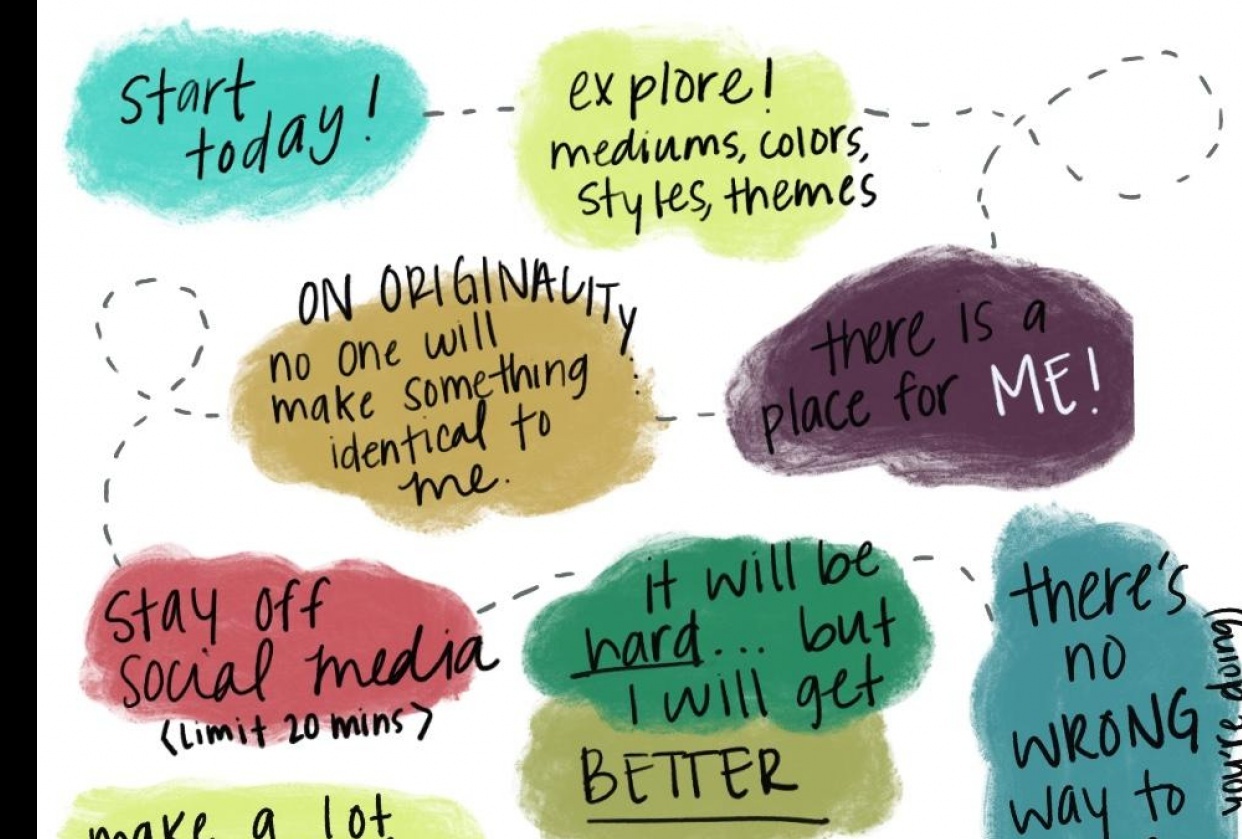 start
today!
explore!
mediums, colors,
styles, themes
there is a
place for ME!
ON ORIGINALITY
no one will
make something
identical to
me.
stay off
social media
(limit 20 mins)
it will be
hard... but
I will get
BETTER
there's
no
WRONG
way to
you're doing)
make a lot